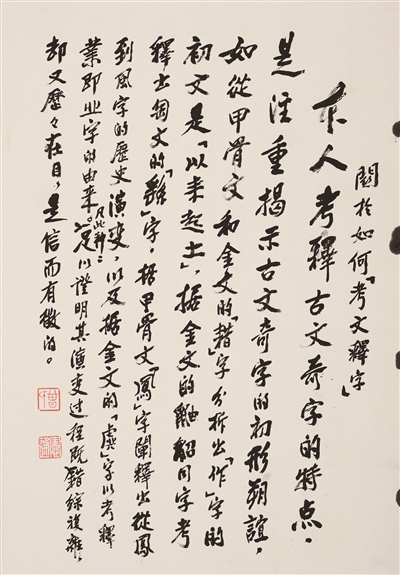 關於如何「考文釋字」
本人考釋古文奇字的特点，
是注重揭示古文奇字的初形朔誼，
如從甲骨文和金文的「耤」字分析出「作」字的
初文是「以耒起土」，据金文的
同字考
釋出匋文的「
」字，据甲骨文「鳳」字闡釋出從鳳
到風字的歷史演变，以及据金文的「虡」字以考釋
業即业字的由来。凡此种々，足以證明其演变过程既錯綜複雜，
却又歷々在目，是信而有徵的。